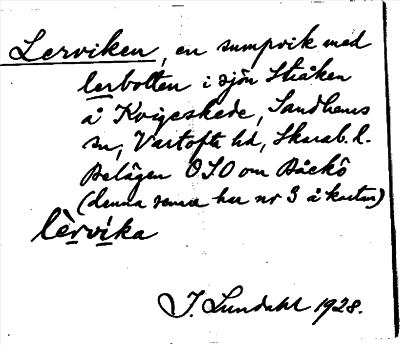 Lerviken, en sumpvik med
lerbotten i sjön Stråken
å Kvigeskede, Sandhems
sn, Vartofta hd, Skarab. l.
Belägen OSO om Båckö
(denna senare har nr 3 å kartan)
lèrvika
J. Lundahl 1928.